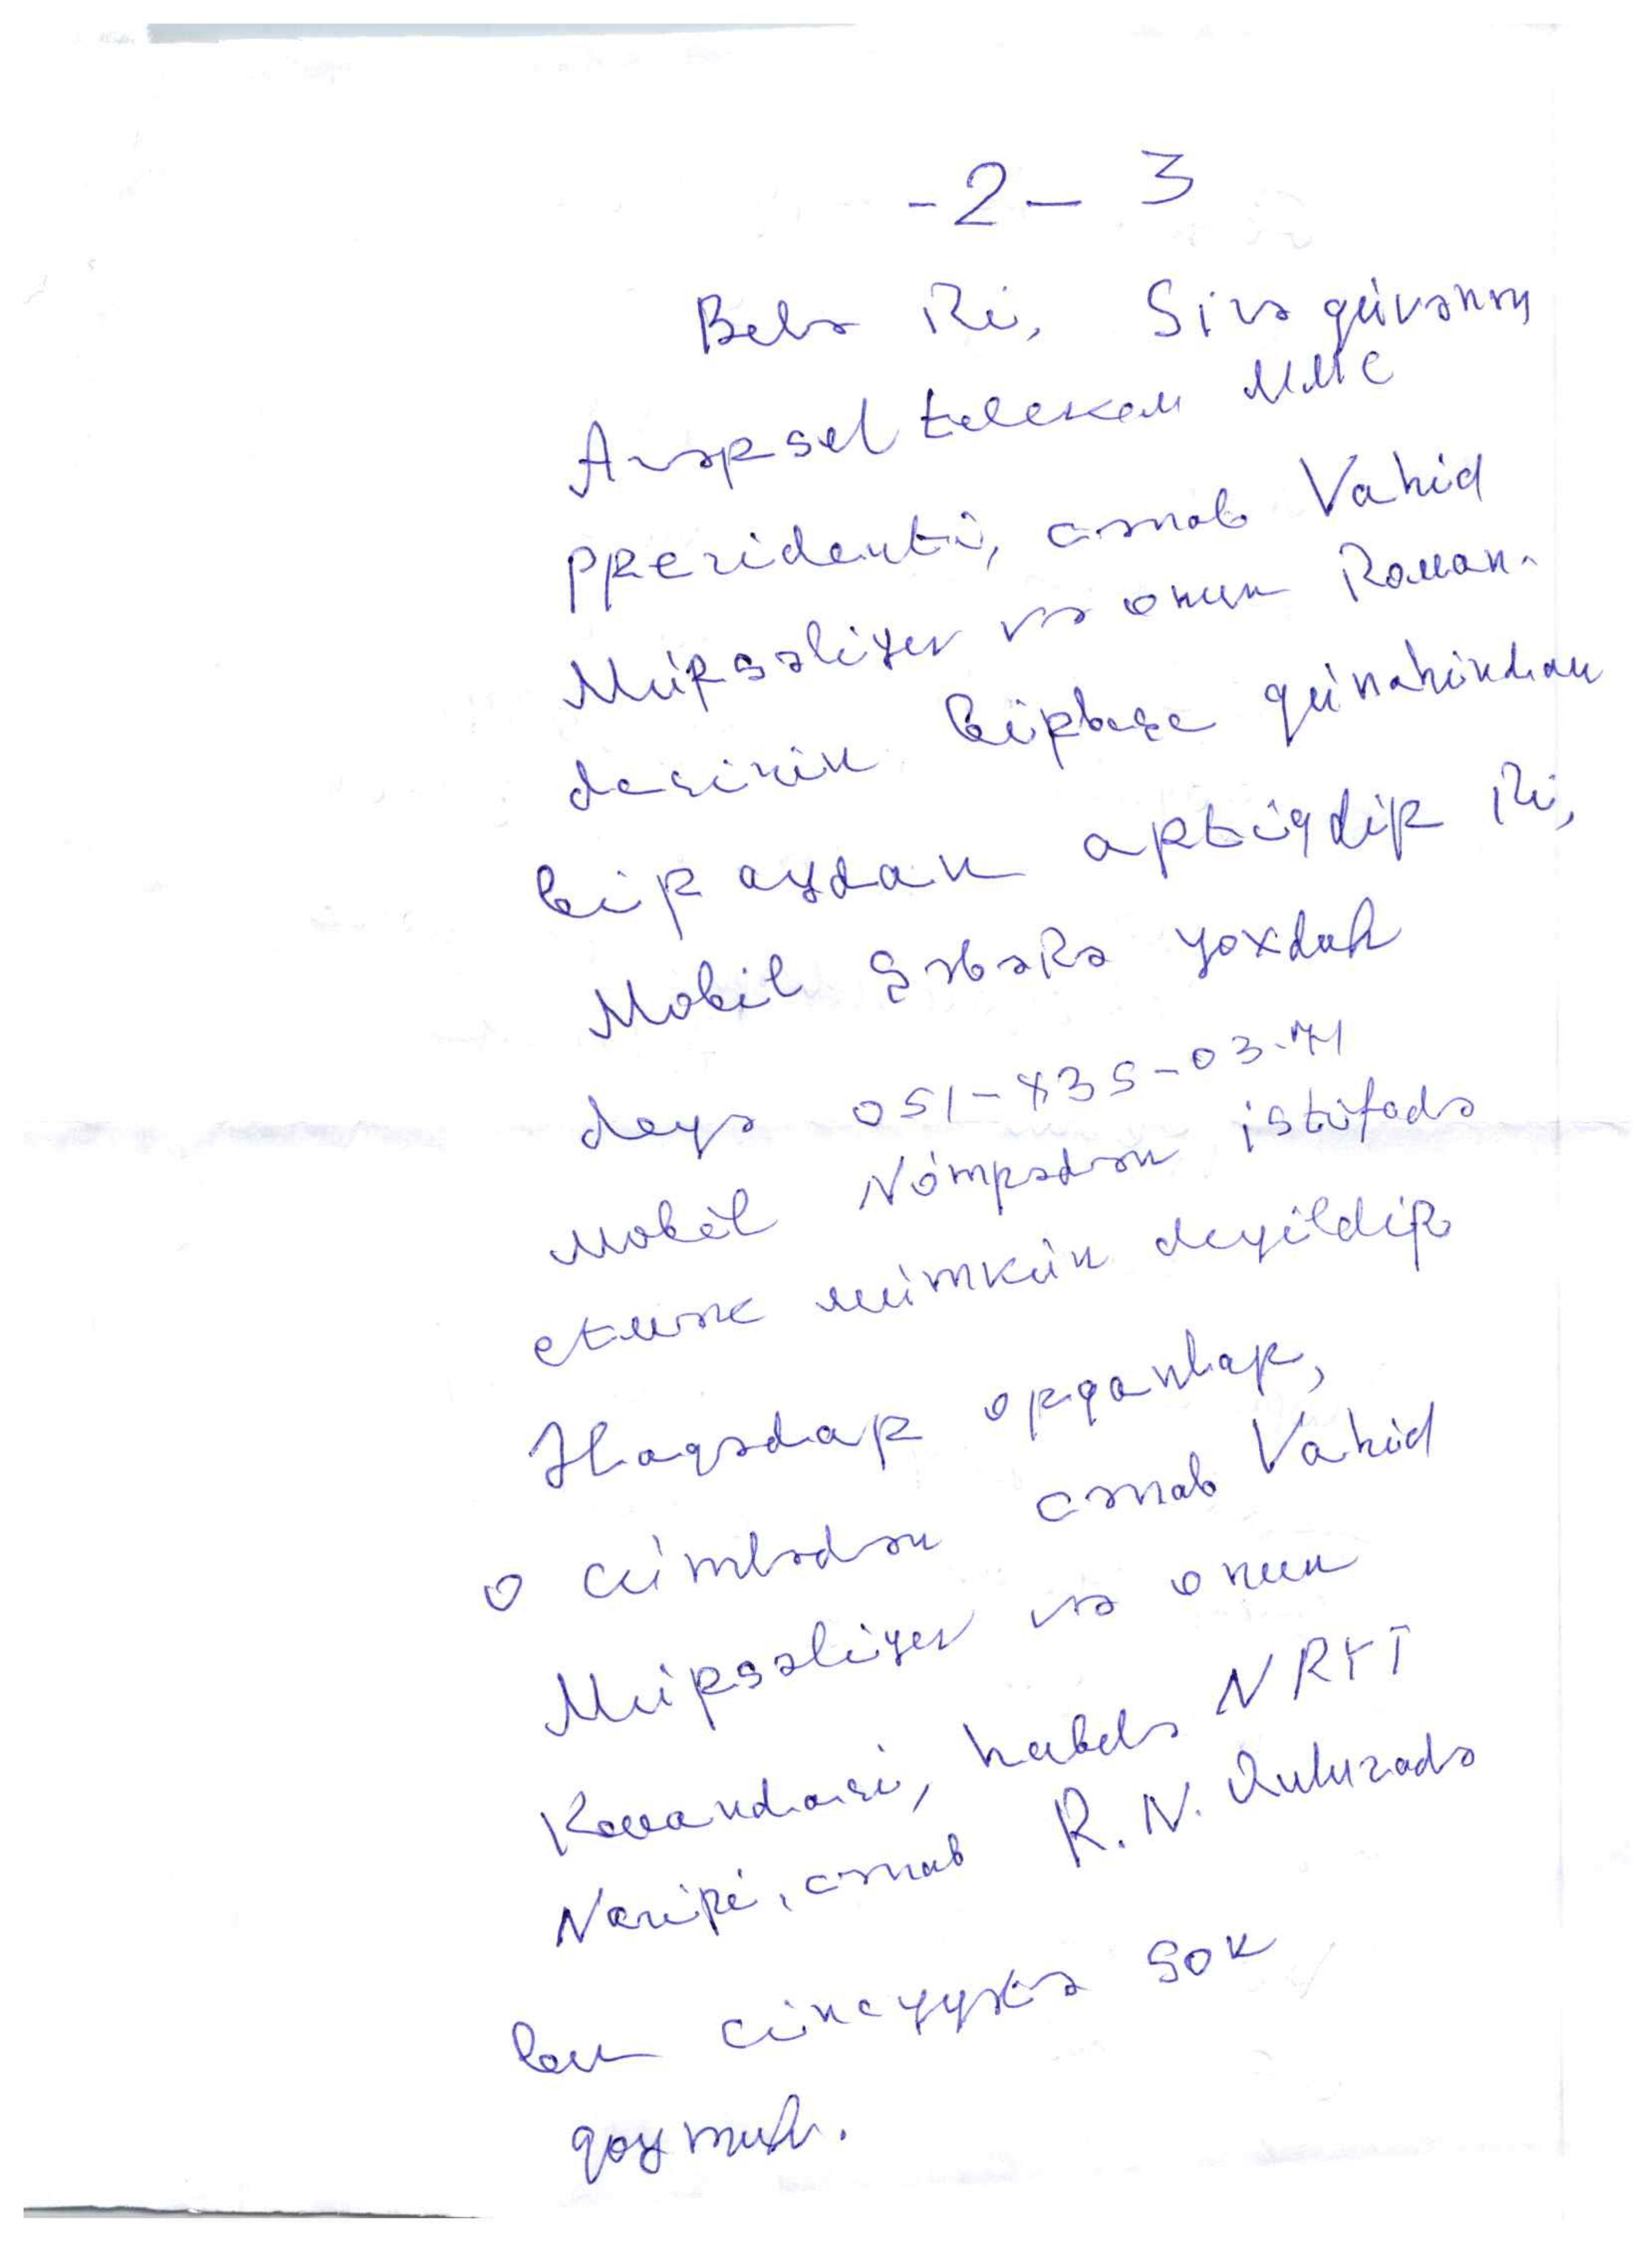 -2- 3
Belə ki, Sizə güvənən
Azərsel telekom MMC
prezidenti, cənab Vahid
Mürsəliyev və onun Koman-
dasının birbaşa günahından
bir aydan artıqdır ki,
Mobil Şəbəkə yoxdur
deyə 051-835-03-71
Mobil Nömrədən istifadə
etmək mümkün deyildir
Əlaqədar orqanlar,
o cümlədən cənab Vahid
Mürsəliyev və onun
Komandası, habelə NRYT
Naziri, cənab R.N. Quluzadə
bu cinayətə son
qoymur.